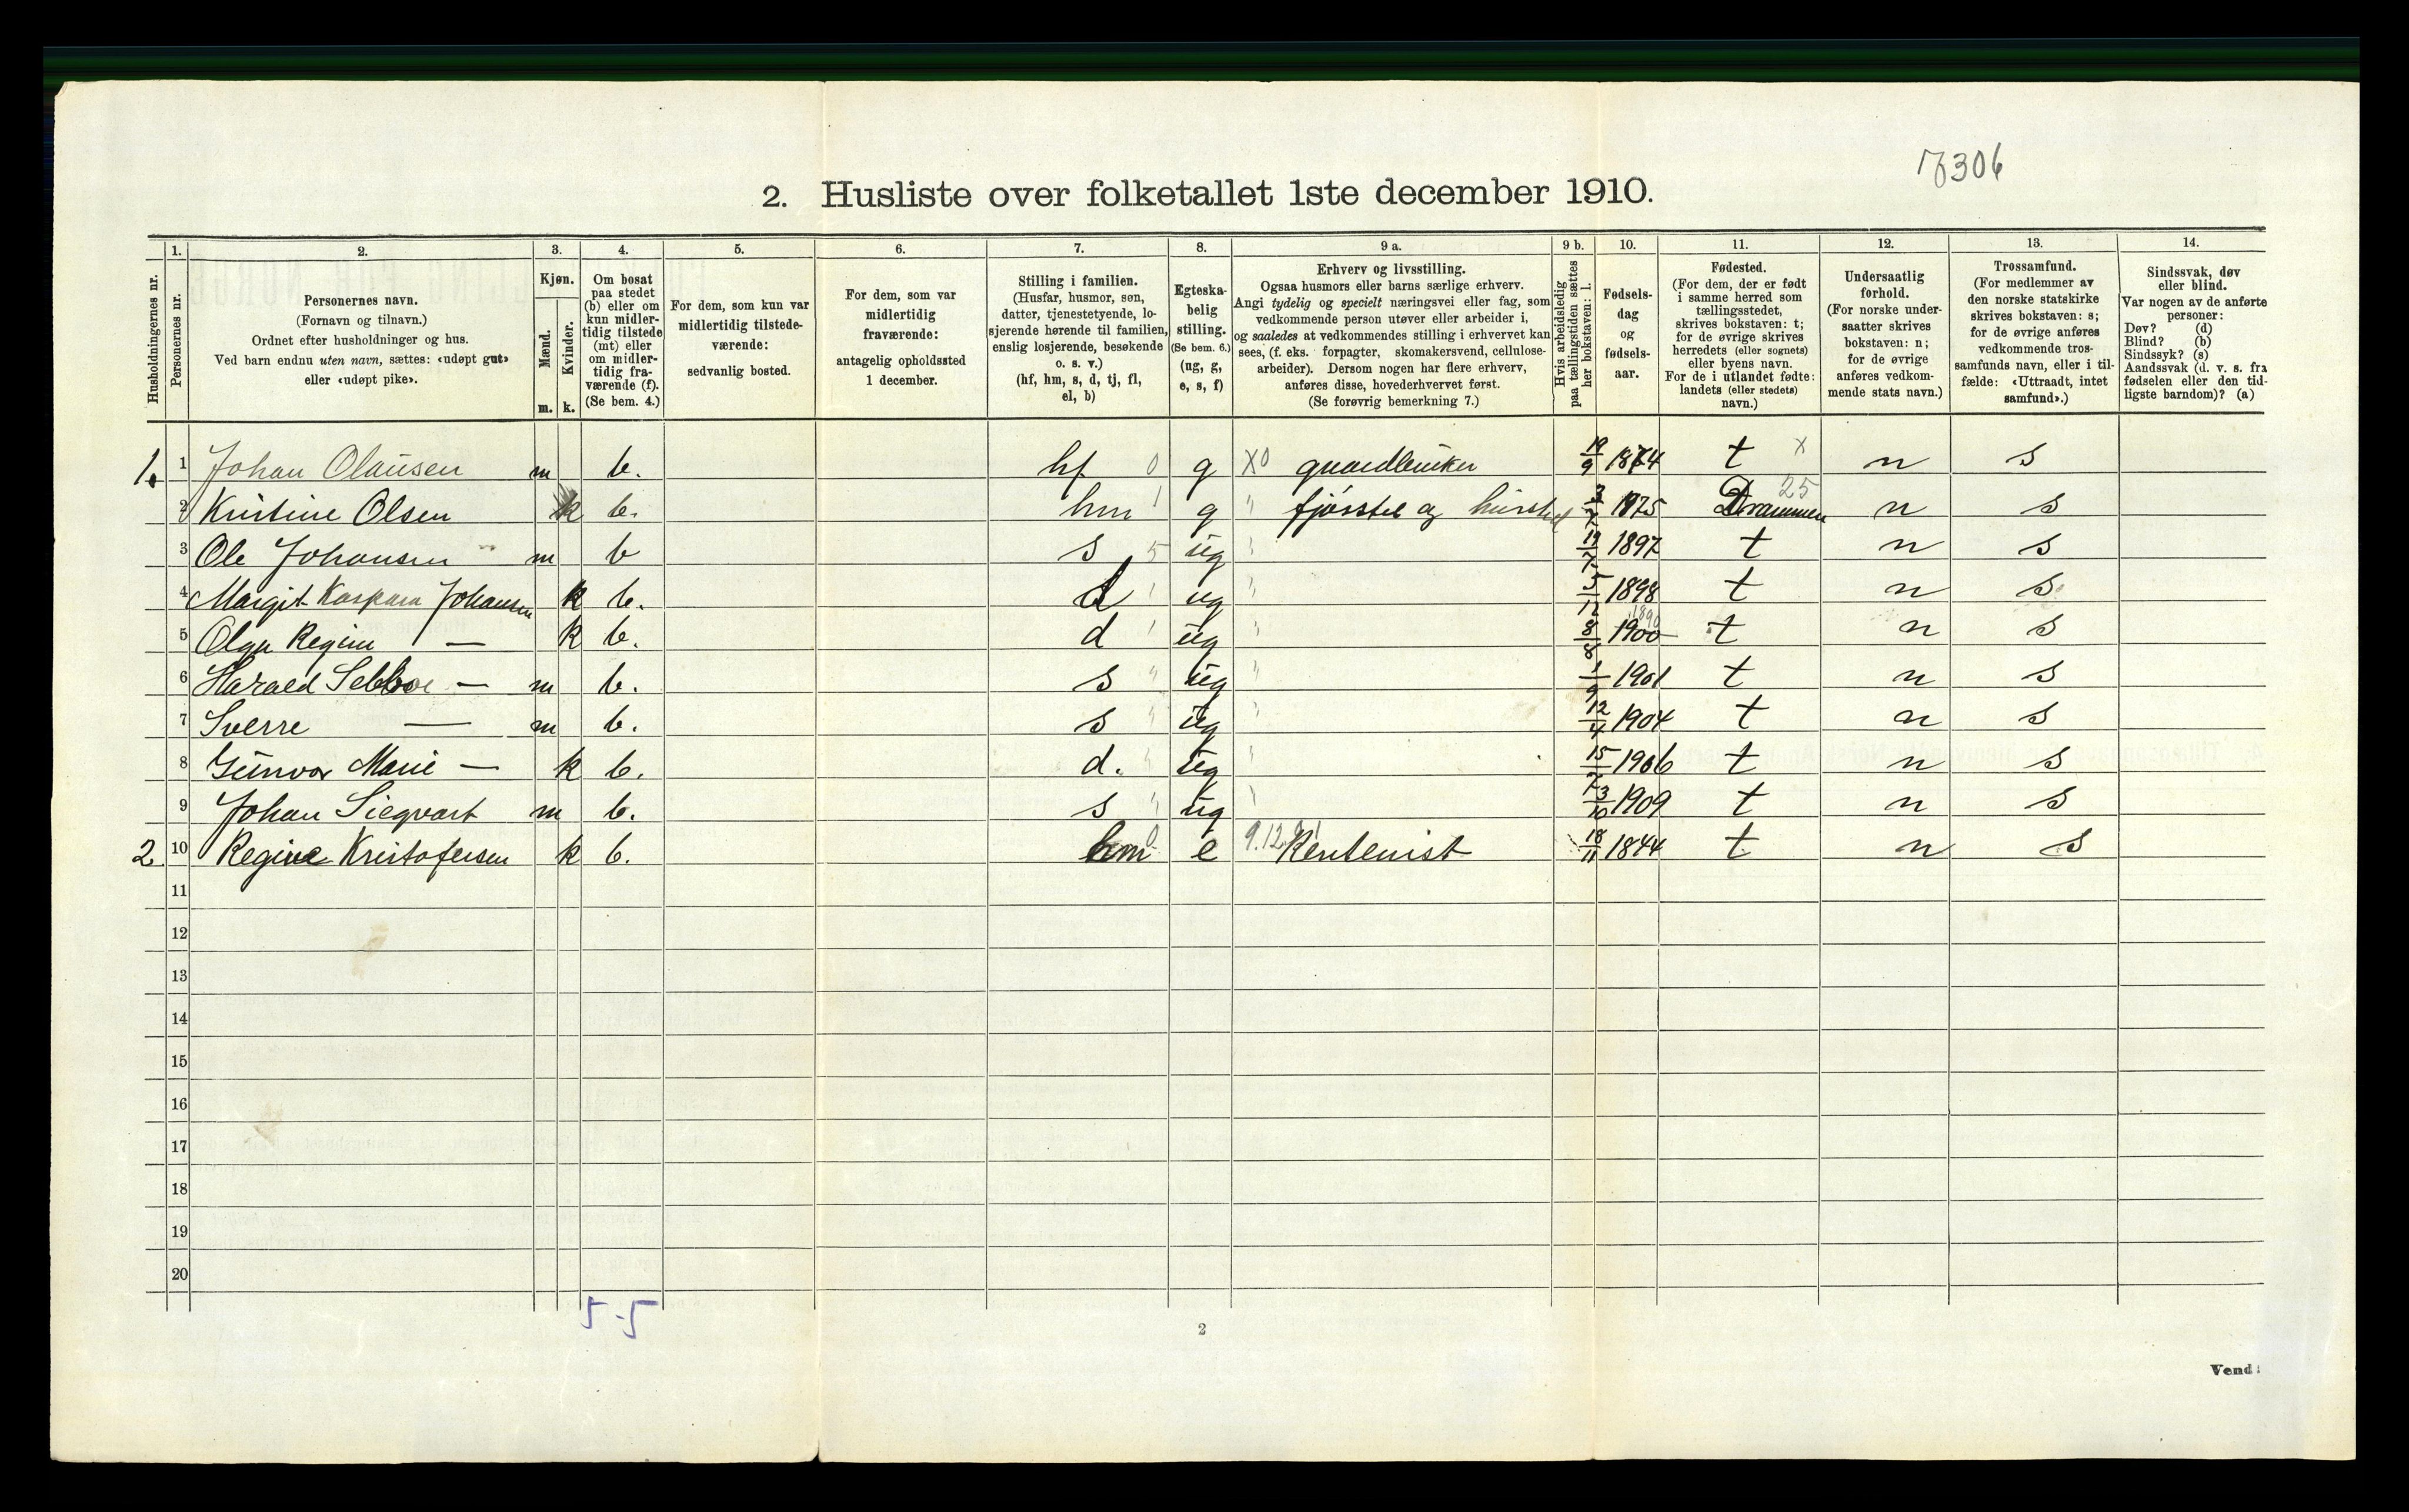 7306
2. Husliste over folketallet 1ste december 1910.
1. 2. 3. 4. 5. 6. 7. 8. 9 a. 9 b. 10. 11. 12. 13. 14.
Husholdningernes nr.
Personernes nr.
Personernes navn.
(Fornavn og tilnavn.)
Ordnet efter husholdninger og hus.
Ved barn endnu uten navn, sættes: «udøpt gut»
eller «udøpt pike».
Kjøn.
Mænd.
Kvinder.
m. k.
Om bosat
paa stedet
(b) eller om
kun midler-
tidig tilstede
(mt) eller
om midler-
tidig fra-
værende (f).
(Se bem. 4.)
For dem, som kun var
midlertidig tilstede-
værende:
sedvanlig bosted.
For dem, som var
midlertidig
fraværende:
antagelig opholdssted
1 december.
Stilling i familien.
(Husfar, husmor, søn,
datter, tjenestetyende, lo-
sjerende hørende til familien,
enslig losjerende, besøkende
o. s. v.)
(hf, hm, s, d, tj, fl,
el, b)
Egteska-
belig
stilling.
(Se bem. 6.)
(ug, g,
e, s, f)
Erhverv og livsstilling.
Ogsaa husmors eller barns særlige erhverv.
Angi tydelig og specielt næringsvei eller fag, som
vedkommende person utøver eller arbeider i,
og saaledes at vedkommendes stilling i erhvervet kan
sees, (f. eks. forpagter, skomakersvend, cellulose-
arbeider). Dersom nogen har flere erhverv,
anføres disse, hovederhvervet først.
(Se forøvrig bemerkning 7.)
Hvis arbeidsledig
paa tællingstiden sættes
her bokstaven: l.
Fødsels-
dag
og
fødsels-
aar.
Fødested.
(For dem, der er født
i samme herred som
tællingsstedet,
skrives bokstaven: t;
for de øvrige skrives
herredets (eller sognets)
eller byens navn.
For de i utlandet fødte:
landets (eller stedets)
navn.)
Undersaatlig
forhold.
(For norske under-
saatter skrives
bokstaven: n;
for de øvrige
anføres vedkom-
mende stats navn.)
Trossamfund.
(For medlemmer av
den norske statskirke
skrives bokstaven: s;
for de øvrige anføres
vedkommende tros-
samfunds navn, eller i til-
fælde: «Uttraadt, intet
samfund».)
Sindssvak, døv
eller blind.
Var nogen av de anførte
personer:
Døv? (d)
Blind? (b)
Sindssyk? (s)
Aandssvak (d. v. s. fra
fødselen eller den tid-
ligste barndom)? (a)
1. 1 Johan Olausen m b. hf 0 g X0 gaardbruker 19/9 1874 t x n s
2 Kristine Olsen k b. hm 1 g " fjøsstel og husstel 3/7 1875 Drammen 25 n s
3 Ole Johansen m b s 5 ug " 19/7 1897 t n s
4 Margit Kaspara Johansen k b. d 1 ug " 5/12 1898 t n s
5 Olga Regine — k b. d 1 ug " 8/8 1900 1890 t n s
6 Harald — m b. s " ug " 1/9 1901 t n s
7 Sverre — m b. s " ug " 12/4 1904 t n s
8 Gunvor Marie — k b. d. " ug " 15/7 1906 t n s
9 Johan Siegvart m b. s " ug " 3/10 1909 t n s
2 10 Regine Kristofersen k b. hm 0 e 9.12 Rentenist 18/11 1844 t n s
11
12
13
14
15
16
17
18
19
20
5-5
2
Vend!